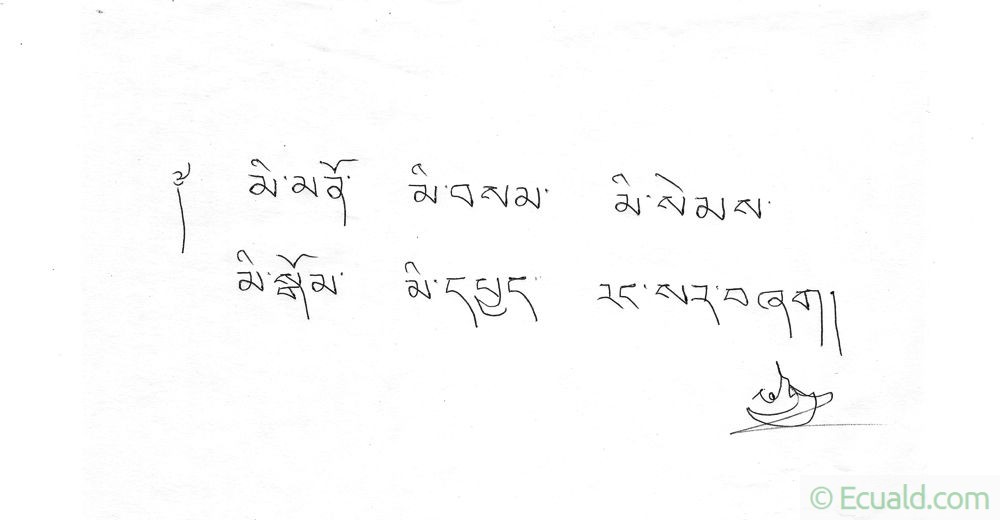 ༄། མི་མནོ་ མི་བསམ་ མི་སེམས་
མི་སྒོམ་ མི་དཔྱད་ རང་སར་བཞག།
© Ecuald.com